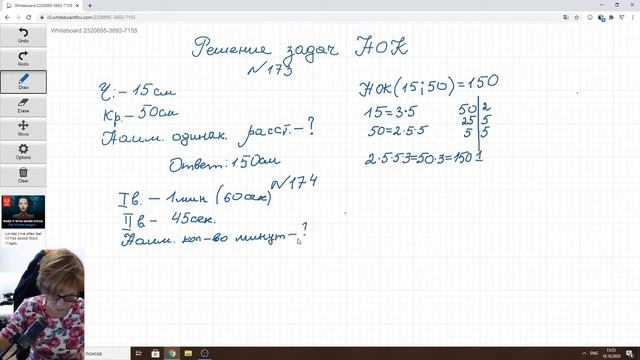 Whiteboard 2320895-3692-7155
r2.whiteboardfox.com/2320895-3692-7155
Whiteboard 2320895-3692-7155
Undo
Redo
Draw
Erase
Move
Options
Clear
Решение задач НОК
№173
Ч: - 15см
Кр. - 50см
Наим. одинак. расст. - ?
Ответ: 150см
НОК (15; 50) = 150
15 = 3·5
50 = 2·5·5
50 2
25 5
5 5
1
2·5·5·3=50·3=150
№174
I в. - 1 мин (60сек)
II в - 45сек.
Наим. кол-во минут - ?
поиска
ENG
13:33
18.10.2020